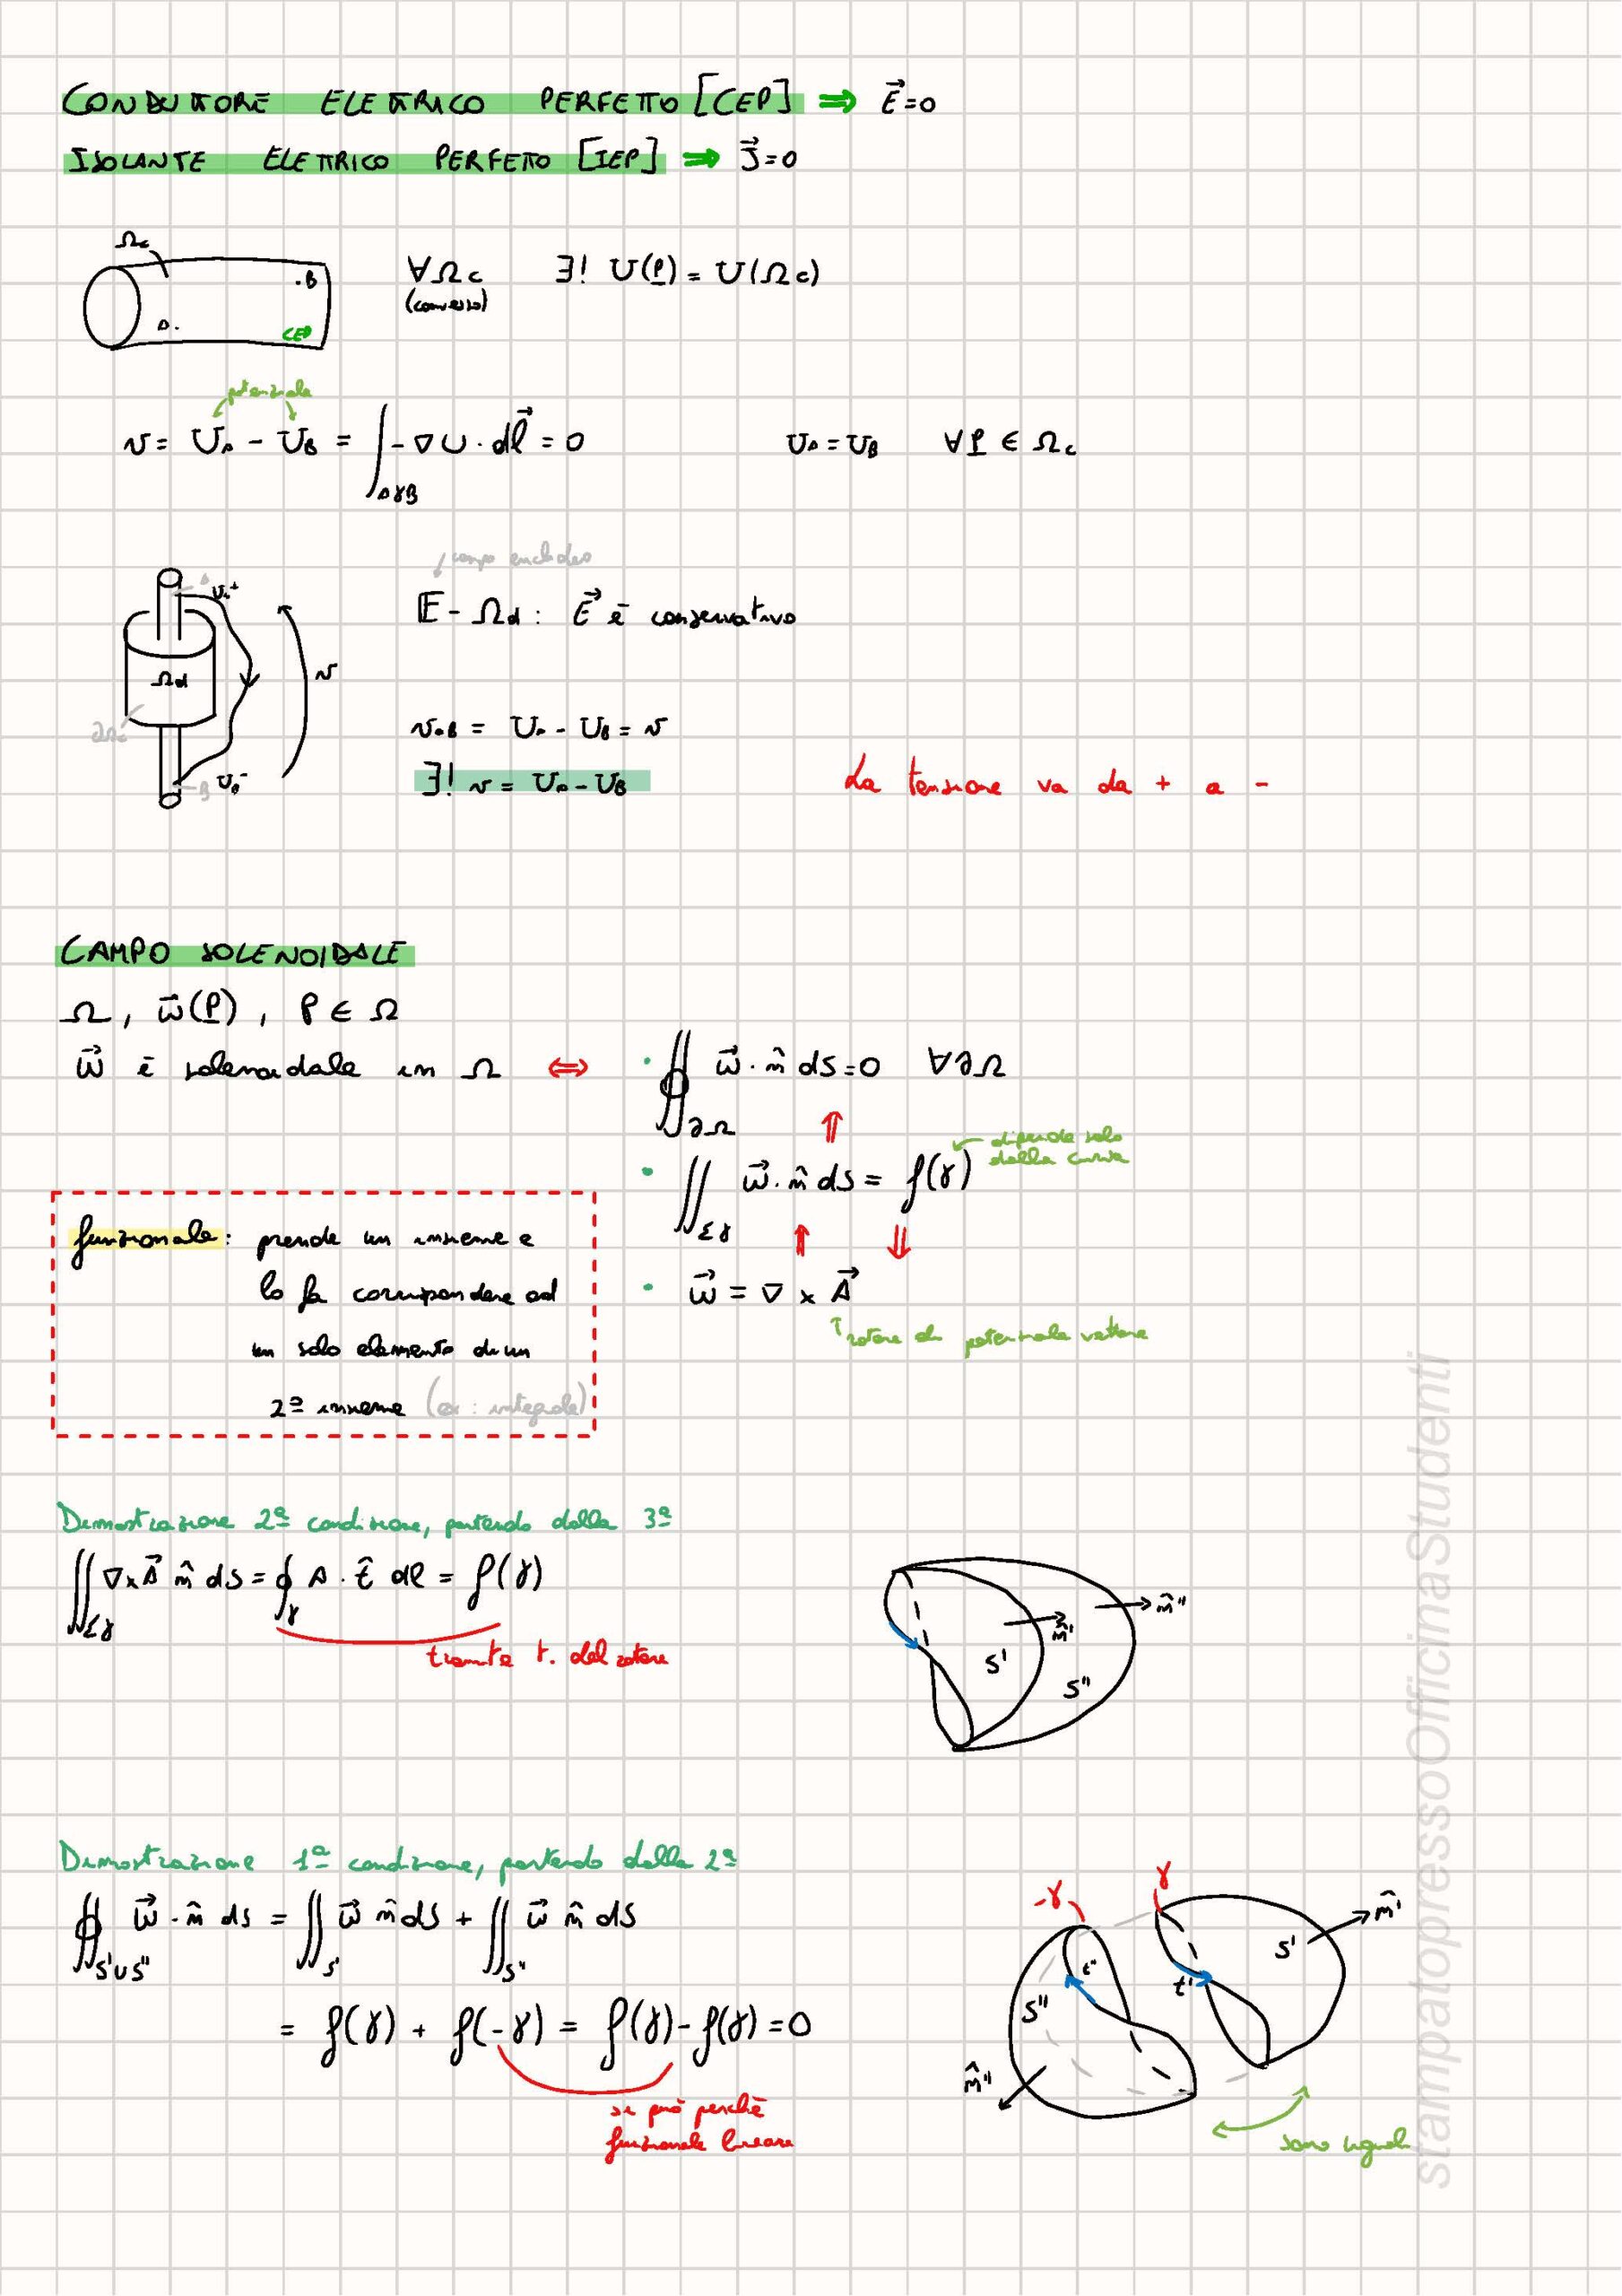 CONDUTTORE ELETTRICO PERFETTO [CEP] ⇒ E⃗=0
ISOLANTE ELETTRICO PERFETTO [IEP] ⇒ J⃗=0
Ωc
.B
A.
CEP
∀Ωc ∃! U(P) = U(Ωc)
(connesso)
potenziale
v = U_A - U_B = ∫_AγB -∇U · dl⃗ = 0 U_A = U_B ∀P ∈ Ωc
campo euclideo
A
U_A⁺
Ωd
v
∂Ω
B
U_B⁻
𝔼 - Ωd : E⃗ è conservativo
v_AB = U_A - U_B = v
∃! v = U_A - U_B
La tensione va da + a -
CAMPO SOLENOIDALE
Ω, w⃗(P), P ∈ Ω
w⃗ è solenoidale in Ω ⇔ • ∯_∂Ω w⃗ · n̂ dS = 0 ∀∂Ω
⇑
• ∬_Σγ w⃗ · n̂ dS = f(γ)
dipende solo
dalla curva
⇑ ⇓
• w⃗ = ∇ × A⃗
rotore di potenziale vettore
funzionale: prende un insieme e
lo fa corrispondere ad
un solo elemento di un
2º insieme (ex: integrale)
Dimostrazione 2ª condizione, partendo dalla 3ª
∬_Σγ ∇×A⃗ n̂ dS = ∮_γ A · t̂ dl = f(γ)
tramite t. del rotore
n̂''
n̂'
S'
S''
Dimostrazione 1ª condizione, partendo dalla 2ª
∯_S'∪S'' w⃗ · n̂ dS = ∬_S' w⃗ n̂ dS + ∬_S'' w⃗ n̂ dS
= f(γ) + f(-γ) = f(γ) - f(γ) = 0
si può perchè
funzionale lineare
-γ
γ
n̂'
S'
t'
t''
S''
n̂''
sono uguali
stampatopressoOfficinaStudenti